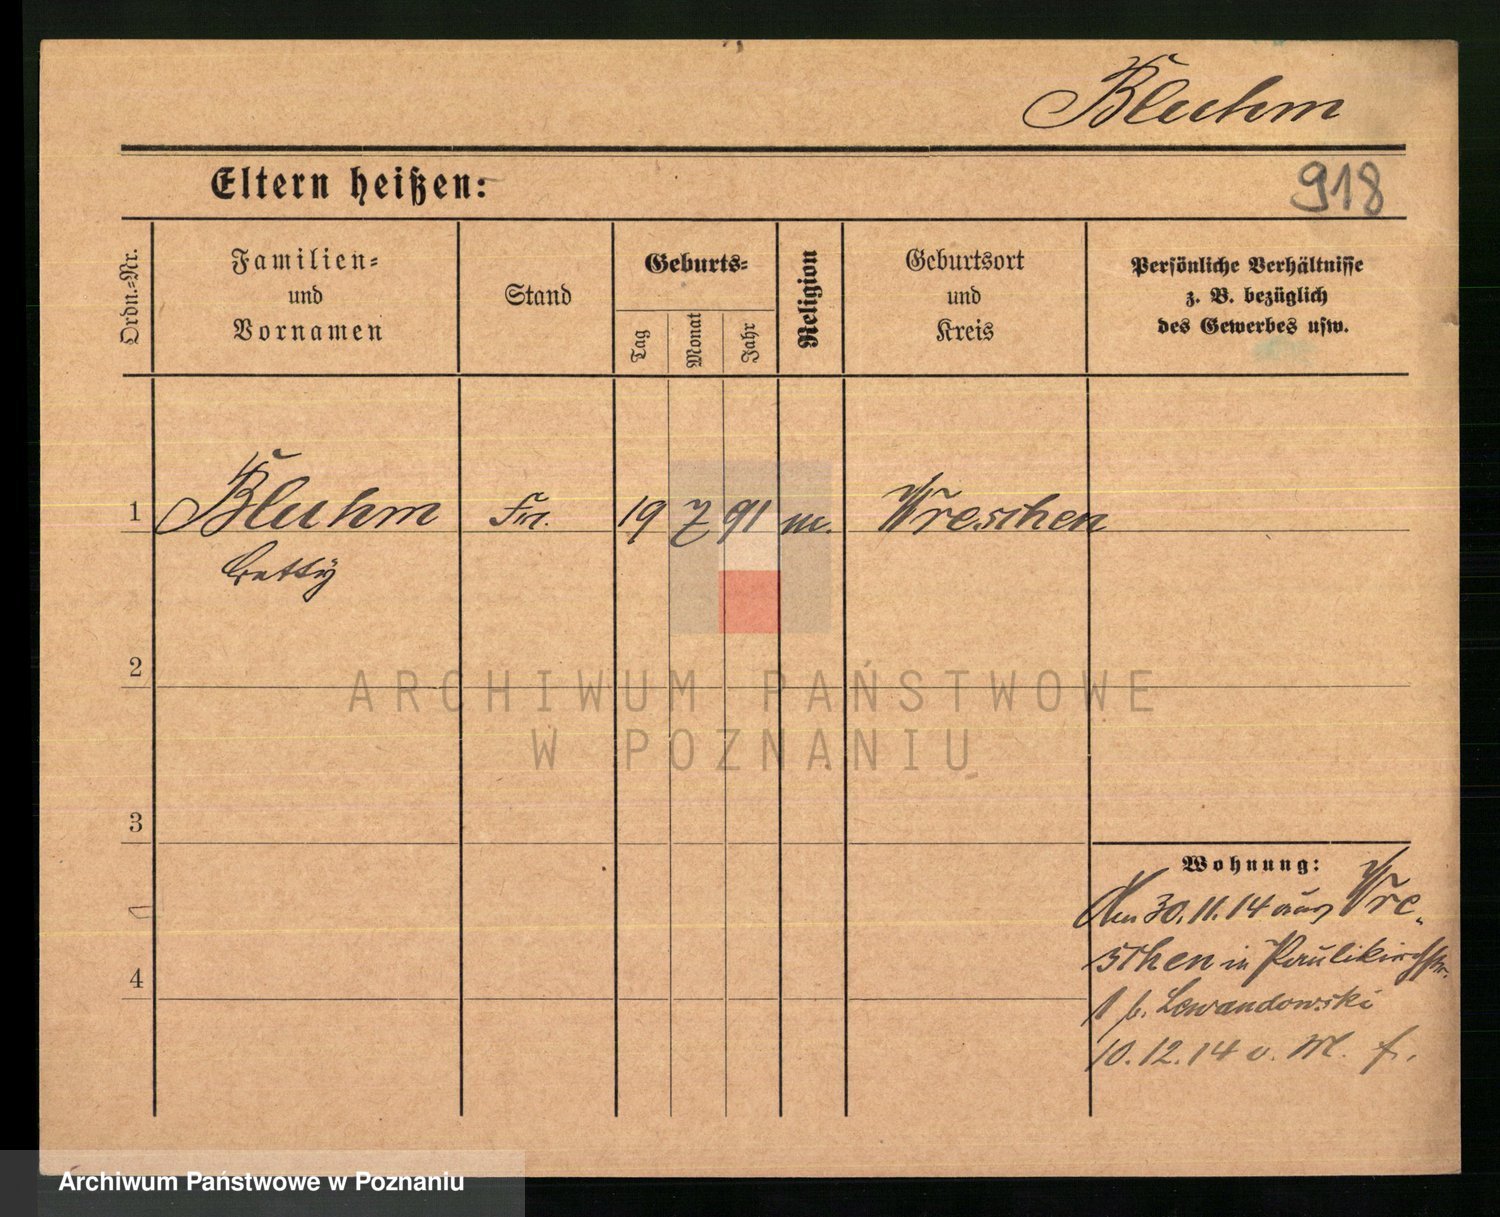 Bluhm
Eltern heißen:
918
Ordn.-Nr.
Familien-
und
Vornamen
Stand
Geburts-
Tag
Monat
Jahr
Religion
Geburtsort
und
Kreis
Persönliche Verhältnisse
z. B. bezüglich
des Gewerbes usw.
1 Bluhm 19 7 91 m. Wreschen
Betty
2
ARCHIWUM PAŃSTWOWE
W POZNANIU
3
Wohnung:
30.11.14 aus Wre-
4 schen in Paulikirchstr.
1 b. Lewandowski
10.12.14 v. M. f.
Archiwum Państwowe w Poznaniu